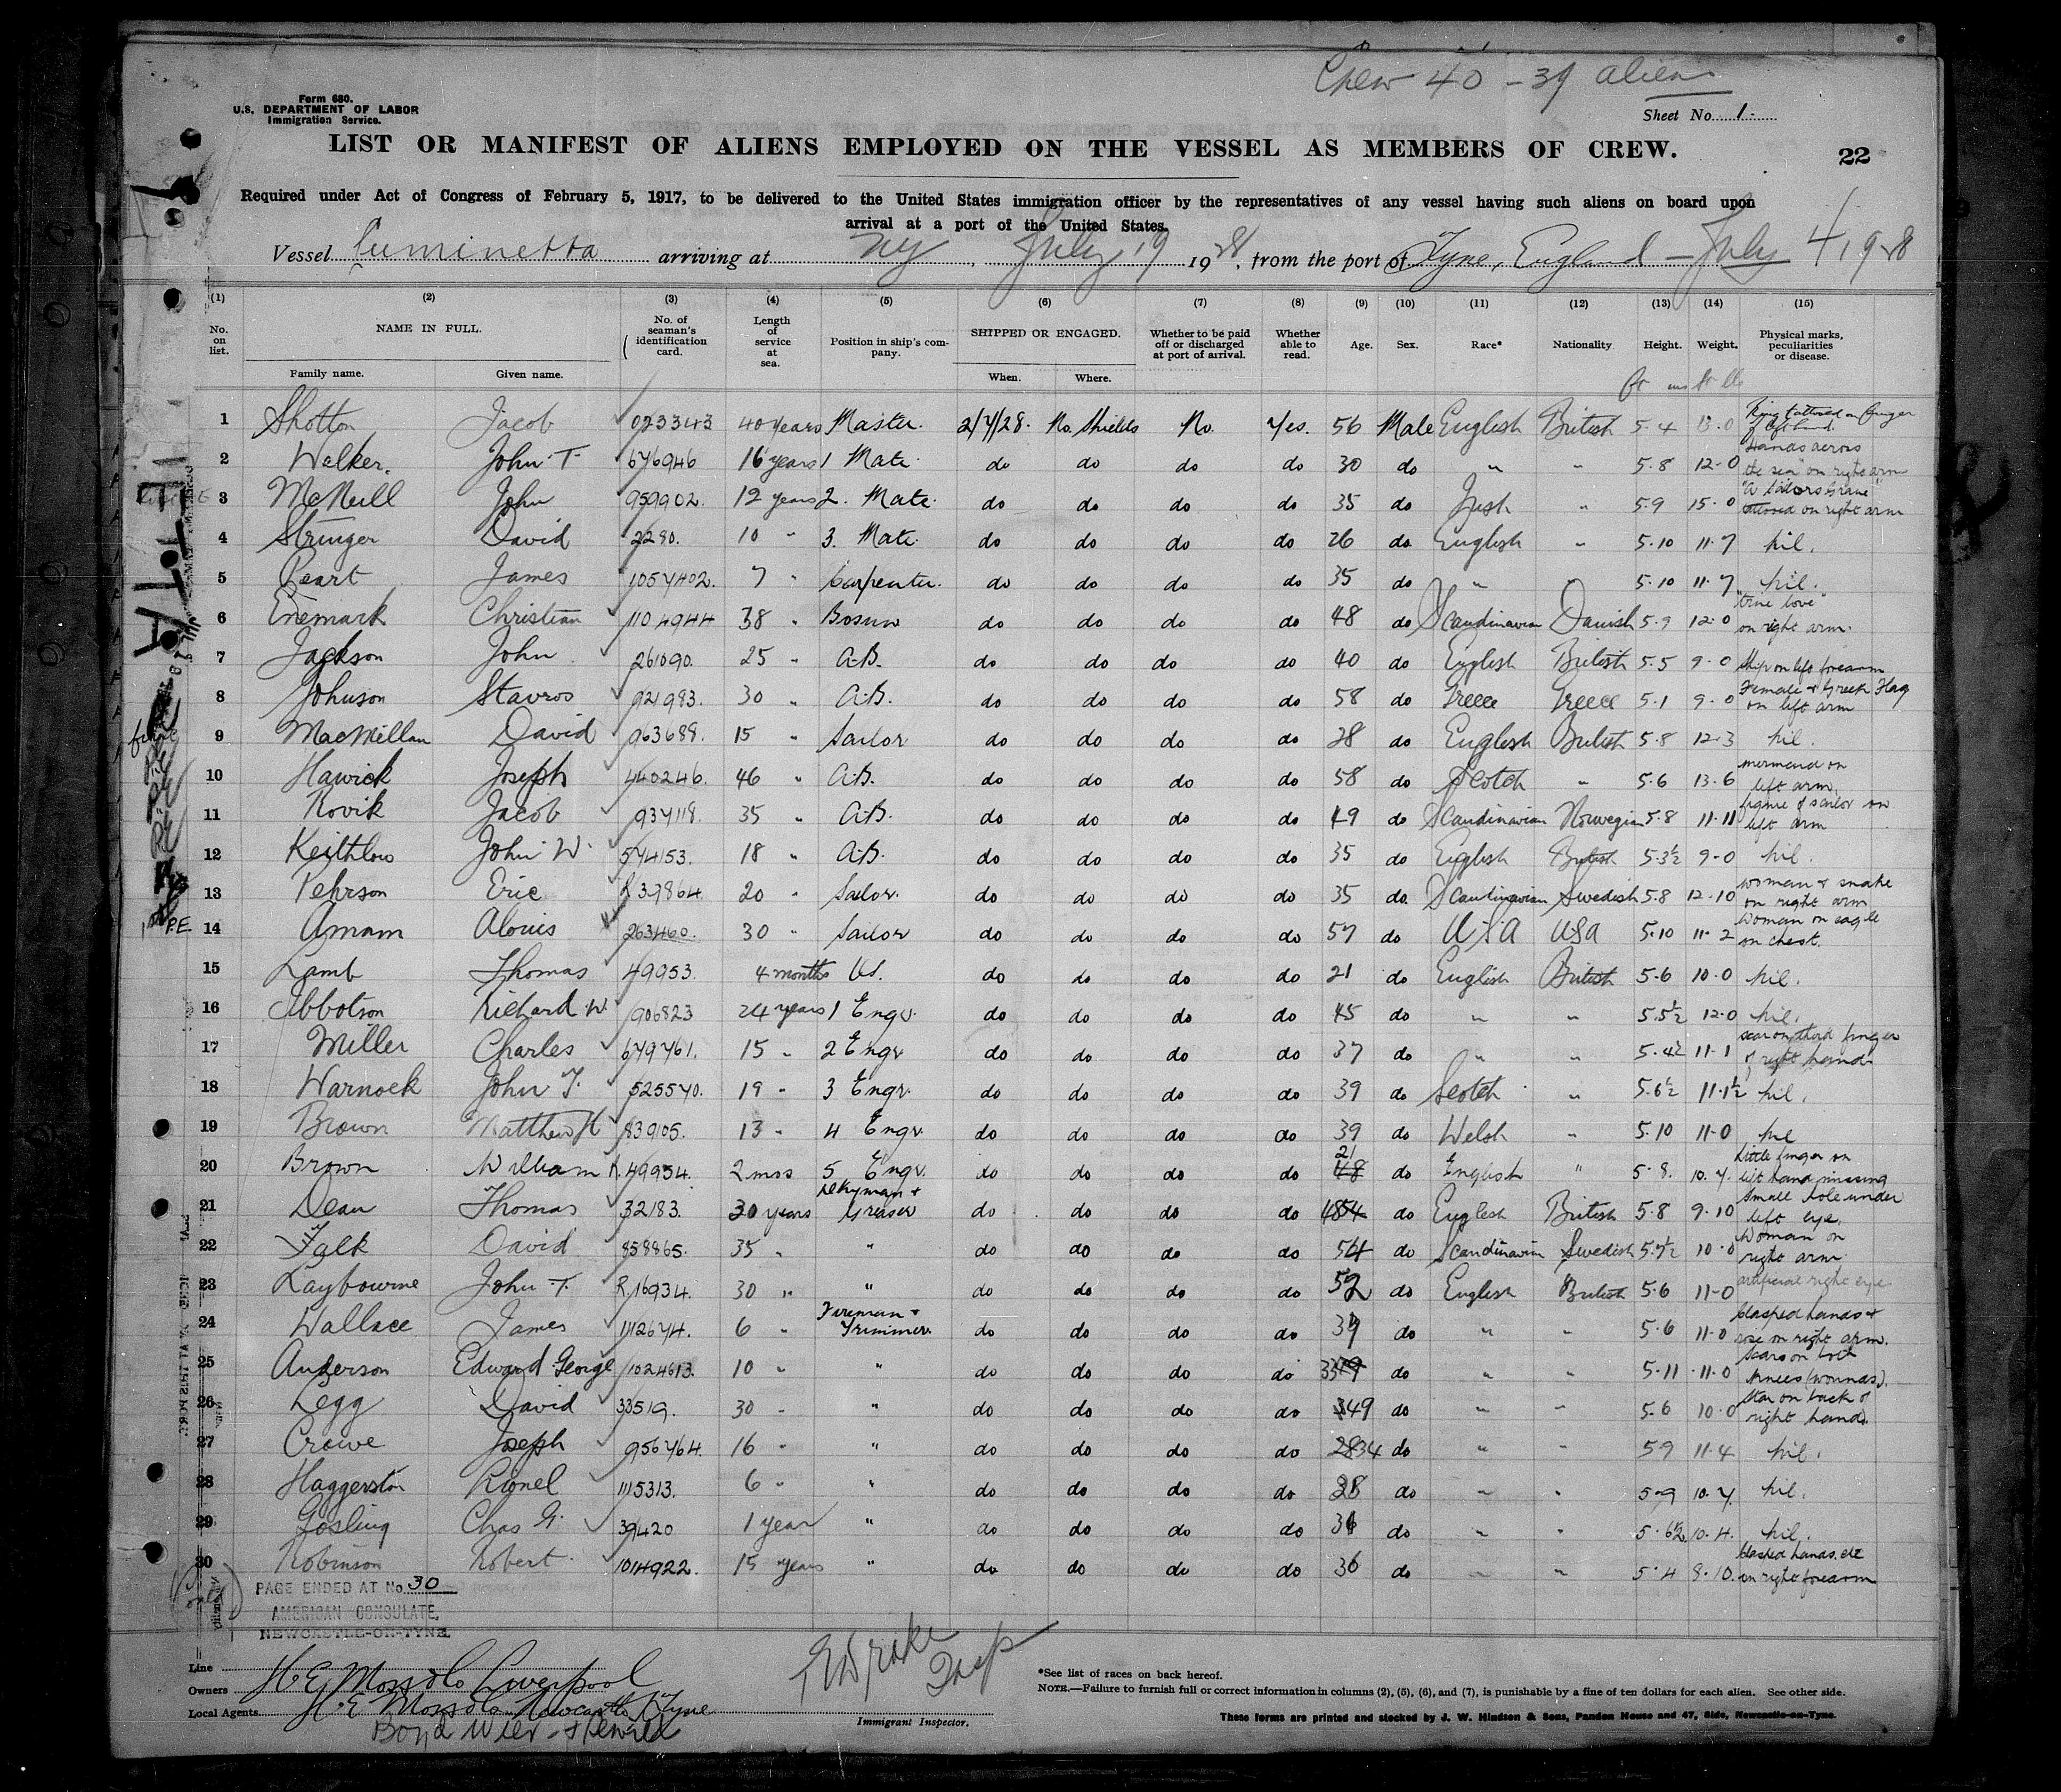 Crew 40 - 39 aliens
Form 680.
U.S. DEPARTMENT OF LABOR
Immigration Service.
Sheet No. 1.
LIST OR MANIFEST OF ALIENS EMPLOYED ON THE VESSEL AS MEMBERS OF CREW.
22
Required under Act of Congress of February 5, 1917, to be delivered to the United States immigration officer by the representatives of any vessel having such aliens on board upon
arrival at a port of the United States.
Vessel Luminetta arriving at NY, July 19 1928, from the port of Tyne, England - July 4, 1928
(1) (2) (3) (4) (5) (6) (7) (8) (9) (10) (11) (12) (13) (14) (15)
No. on list. NAME IN FULL. Family name. Given name. No. of seaman's identification card. Length of service at sea. Position in ship's company. SHIPPED OR ENGAGED. When. Where. Whether to be paid off or discharged at port of arrival. Whether able to read. Age. Sex. Race* Nationality Height. Weight. Physical marks, peculiarities or disease.
ft ins st lb
1 Shotton Jacob 023343 40 years Master. 2/7/28. No. Shields No. Yes. 56 Male English British 5.4 13.0 Ring tattooed on finger of left hand.
2 Walker. John T. 676946 16 years 1 Mate. do do do do 30 do " " 5.8 12-0 Hands across the sea" on right arm
3 McNeill John 959902. 12 years 2. Mate. do do do do 35 do Irish " 5.9 15.0 "A Sailors Grave" tattooed on right arm
4 Stringer David 2280. 10 " 3. Mate. do do do do 26 do English " 5.10 11.7 Nil.
5 Peart James 1057402. 7 " Carpenter. do do do do 35 do " 5.10 11.7 Nil.
6 Enemark Christian 1104944 38 " Bosun do do do do 48 do Scandinavian Danish 5.9 12.0 "true love" on right arm.
7 Jackson John 261090. 25 " A.B. do do do do 40 do English British 5.5 9.0 Ship on left forearm
8 Johnson Stavros 921983. 30 " A.B. do do do do 58 do Greece Greece 5.1 9.0 Female & Greek Flag on left arm
9 MacMillan David 963688. 15 " Sailor do do do do 28 do English British 5.8 12.3 Nil.
10 Hawick Joseph 440246. 46 " A.B. do do do do 58 do Scotch " 5.6 13.6 mermaid on left arm.
11 Rovik Jacob 937118. 35 " A.B. do do do do 49 do Scandinavian Norwegian 5.8 11.11 figure of sailor on left arm
12 Keithlow John W. 574153. 18 " A.B. do do do do 35 do English British 5.3½ 9-0 Nil.
13 Pehrson Eric R 37864. 20 " Sailor. do do do do 35 do Scandinavian Swedish 5.8 12.10 woman & snake on right arm
14 Amam Alouis 263460. 30 " Sailor do do do do 57 do USA USA 5.10 11.2 Woman on eagle on chest.
15 Lamb Thomas 49953. 4 months OS. do do do do 21 do English British 5.6 10.0 Nil.
16 Ibbotson Richard W 906823 24 years 1 Engr. do do do do 45 do " " 5.5½ 12.0 Nil.
17 Miller Charles 679761. 15 " 2 Engr do do do do 37 do " " 5.4½ 11.1 scar on third finger of right hand.
18 Warnock John T. 525570. 19 " 3 Engr. do do do do 39 do Scotch " 5.6½ 11.1½ Nil.
19 Brown Matthew H 839105. 13 " 4 Engr. do do do do 39 do Welsh " 5.10 11-0 Nil
20 Brown William R. 49954. 2 mos 5 Engr. do do do do 48 21 do English " 5.8. 10.7. little finger on left hand missing
21 Dean Thomas 32183. 30 years Dkyman & Greaser do do do do 48 54 do English British 5.8 9.10 Small hole under left eye.
22 Falk David 858865. 35 " " do do do do 54 do Scandinavian Swedish 5.7½ 10.0 Woman on right arm.
23 Laybourne John T. R.16934. 30 " " do do do do 52 do English British 5.6 11-0 artificial right eye
24 Wallace James 1112674. 6 " Fireman & Trimmer. do do do do 39 do " " 5.6 11.0 Clasped hands & rose on right arm.
25 Anderson Edward George 1024613. 10 " " do do do do 33 do " " 5.11 11.0 Scars on both knees (wounds).
26 Legg David 33519. 30 " " do do do do 49 do " " 5.6 10.0 Star on back of right hand.
27 Crowe Joseph 956764. 16 " " do do do do 28 34 do " " 5.9 11.4 Nil.
28 Haggerston Lionel 1115313. 6 " " do do do do 28 do " " 5.9 10.7. Nil.
29 Gosling Chas G. 39420 1 year " do do do do 31 do " " 5.6½ 10.4. Nil.
30 Robinson Robert 1014922. 15 years " do do do do 36 do " " 5.4 8.10. Clasped hands. etc on right forearm
PAGE ENDED AT No. 30
AMERICAN CONSULATE,
NEWCASTLE-ON-TYNE.
Line
Owners H E Moss & Co Liverpool
Local Agents H. E Moss & Co. Newcastle o/Tyne
Boyd Wier & Sewell
Drake Insp
Immigrant Inspector.
*See list of races on back hereof.
NOTE.—Failure to furnish full or correct information in columns (2), (5), (6), and (7), is punishable by a fine of ten dollars for each alien. See other side.
These forms are printed and stocked by J. W. Hindson & Sons, Pandon House and 47, Side, Newcastle-on-Tyne.